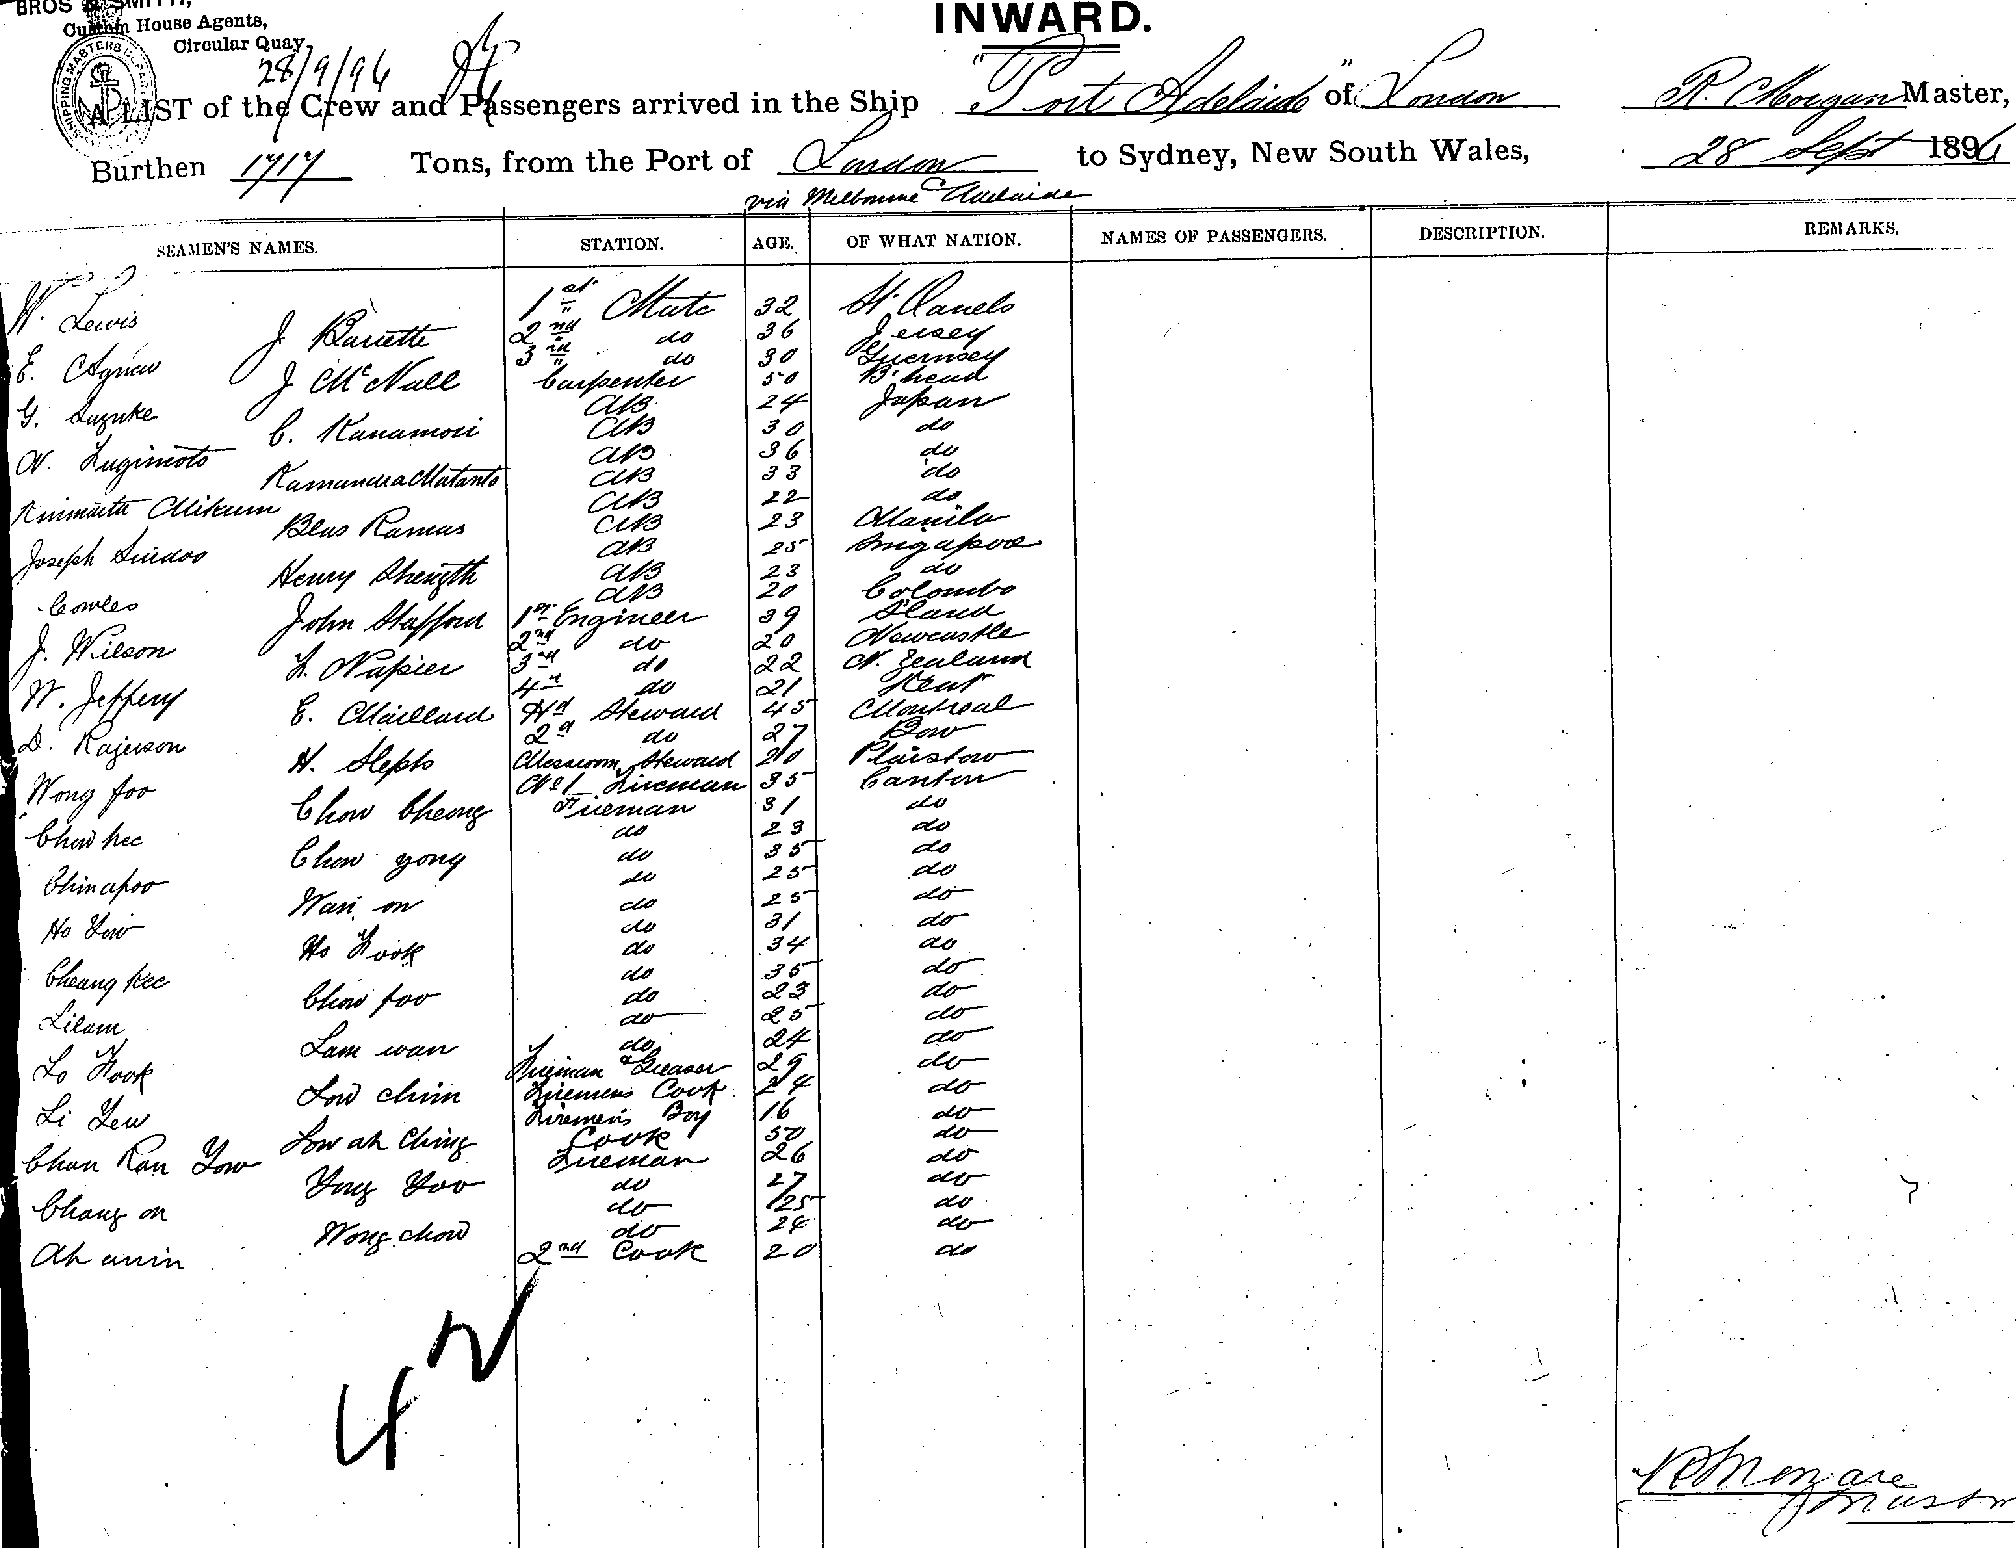 BROS & SMITH,
Custom House Agents,
Circular Quay
28/9/96
INWARD.
A LIST of the Crew and Passengers arrived in the Ship "Port Adelaide" of London R. Morgan Master,
Burthen 1717 Tons, from the Port of London to Sydney, New South Wales, 28 Sept 1896
via Melbourne & Adelaide
SEAMEN'S NAMES. STATION. AGE. OF WHAT NATION. NAMES OF PASSENGERS. DESCRIPTION. REMARKS.
W. Lewis 1st Mate 32 St
J 2nd do 36 Jersey
E. Agnew 3rd do 30 Guernsey
J McNall Carpenter 50 B'head
G. Suzuke AB 24 Japan
C. Kanamori AB 30 do
N. Sugimoto AB 36 do
AB 33 do
AB 22 do
Blas Ramus AB 23 Manila
Joseph AB 25 Singapore
Henry Strength AB 23 do
Cowles AB 20 Colombo
John Stafford 1st Engineer 39
J. Wilson 2nd do 20 Newcastle
L. Napier 3rd do 22 N. Zealand
W. Jeffery 4th do 21 Kent
E. Maillard Hd Steward 45 Montreal
D. 2d do 27 Bow
H. Messroom Steward 20 Plaistow
Wong foo No 1 Fireman 35 Canton
Chow Cheong Fireman 31 do
Chow kee do 23 do
Chow yong do 35 do
Chinapoo do 25 do
on do 25 do
Ho Yow do 31 do
Ho Fook do 34 do
Cheang kee do 35 do
Chow foo do 23 do
Lilam do 25 do
Lam wan do 24 do
Lo Fook Fireman & Greaser 29 do
Low chim Firemens Cook 24 do
Li Yew Firemen's Boy 16 do
Low ah Ching Cook 50 do
Chan Kan Yow Fireman 26 do
Yung Yoo do 27 do
Chang on do 25 do
Wong chow do 24 do
Ah 2nd Cook 20 do
42
R Morgan
Master